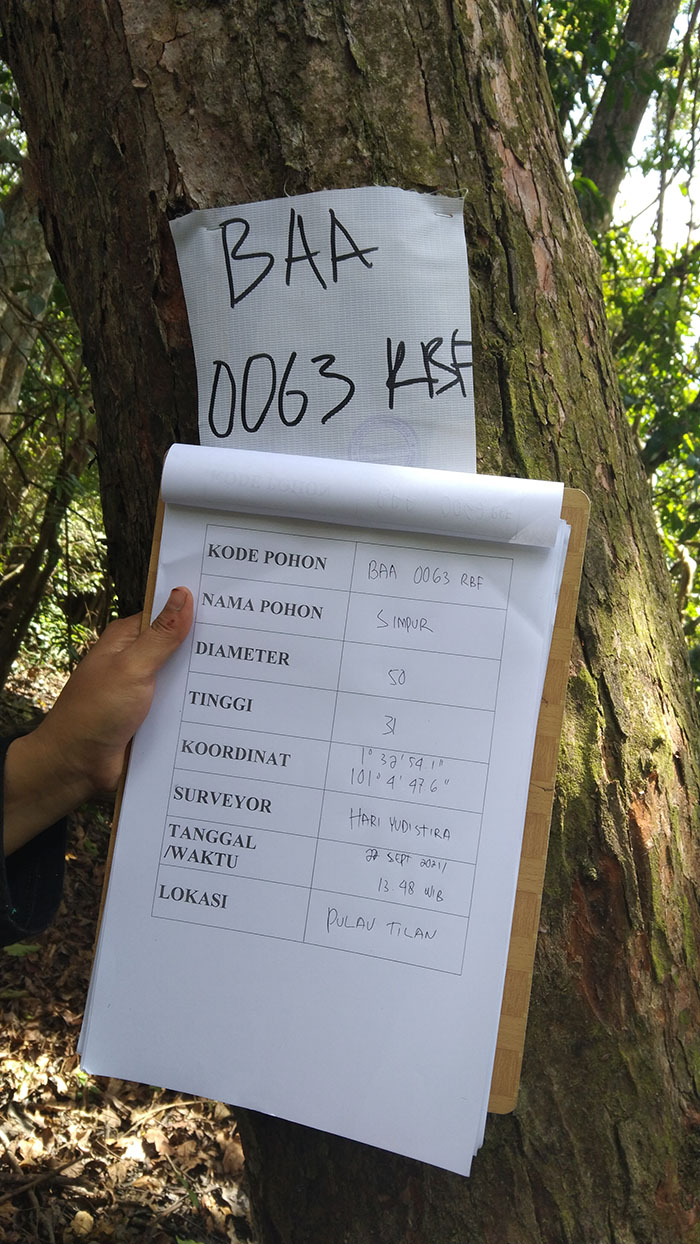 BAA
0063 RBF
KODE POHON BAA 0063 RBF
NAMA POHON SIMPUR
DIAMETER 50
TINGGI 31
KOORDINAT 1° 32' 54.1"
101° 4' 47.6"
SURVEYOR HARI YUDISTIRA
TANGGAL
/WAKTU
SEPT 2021/
13.48 WIB
LOKASI PULAU TILAN